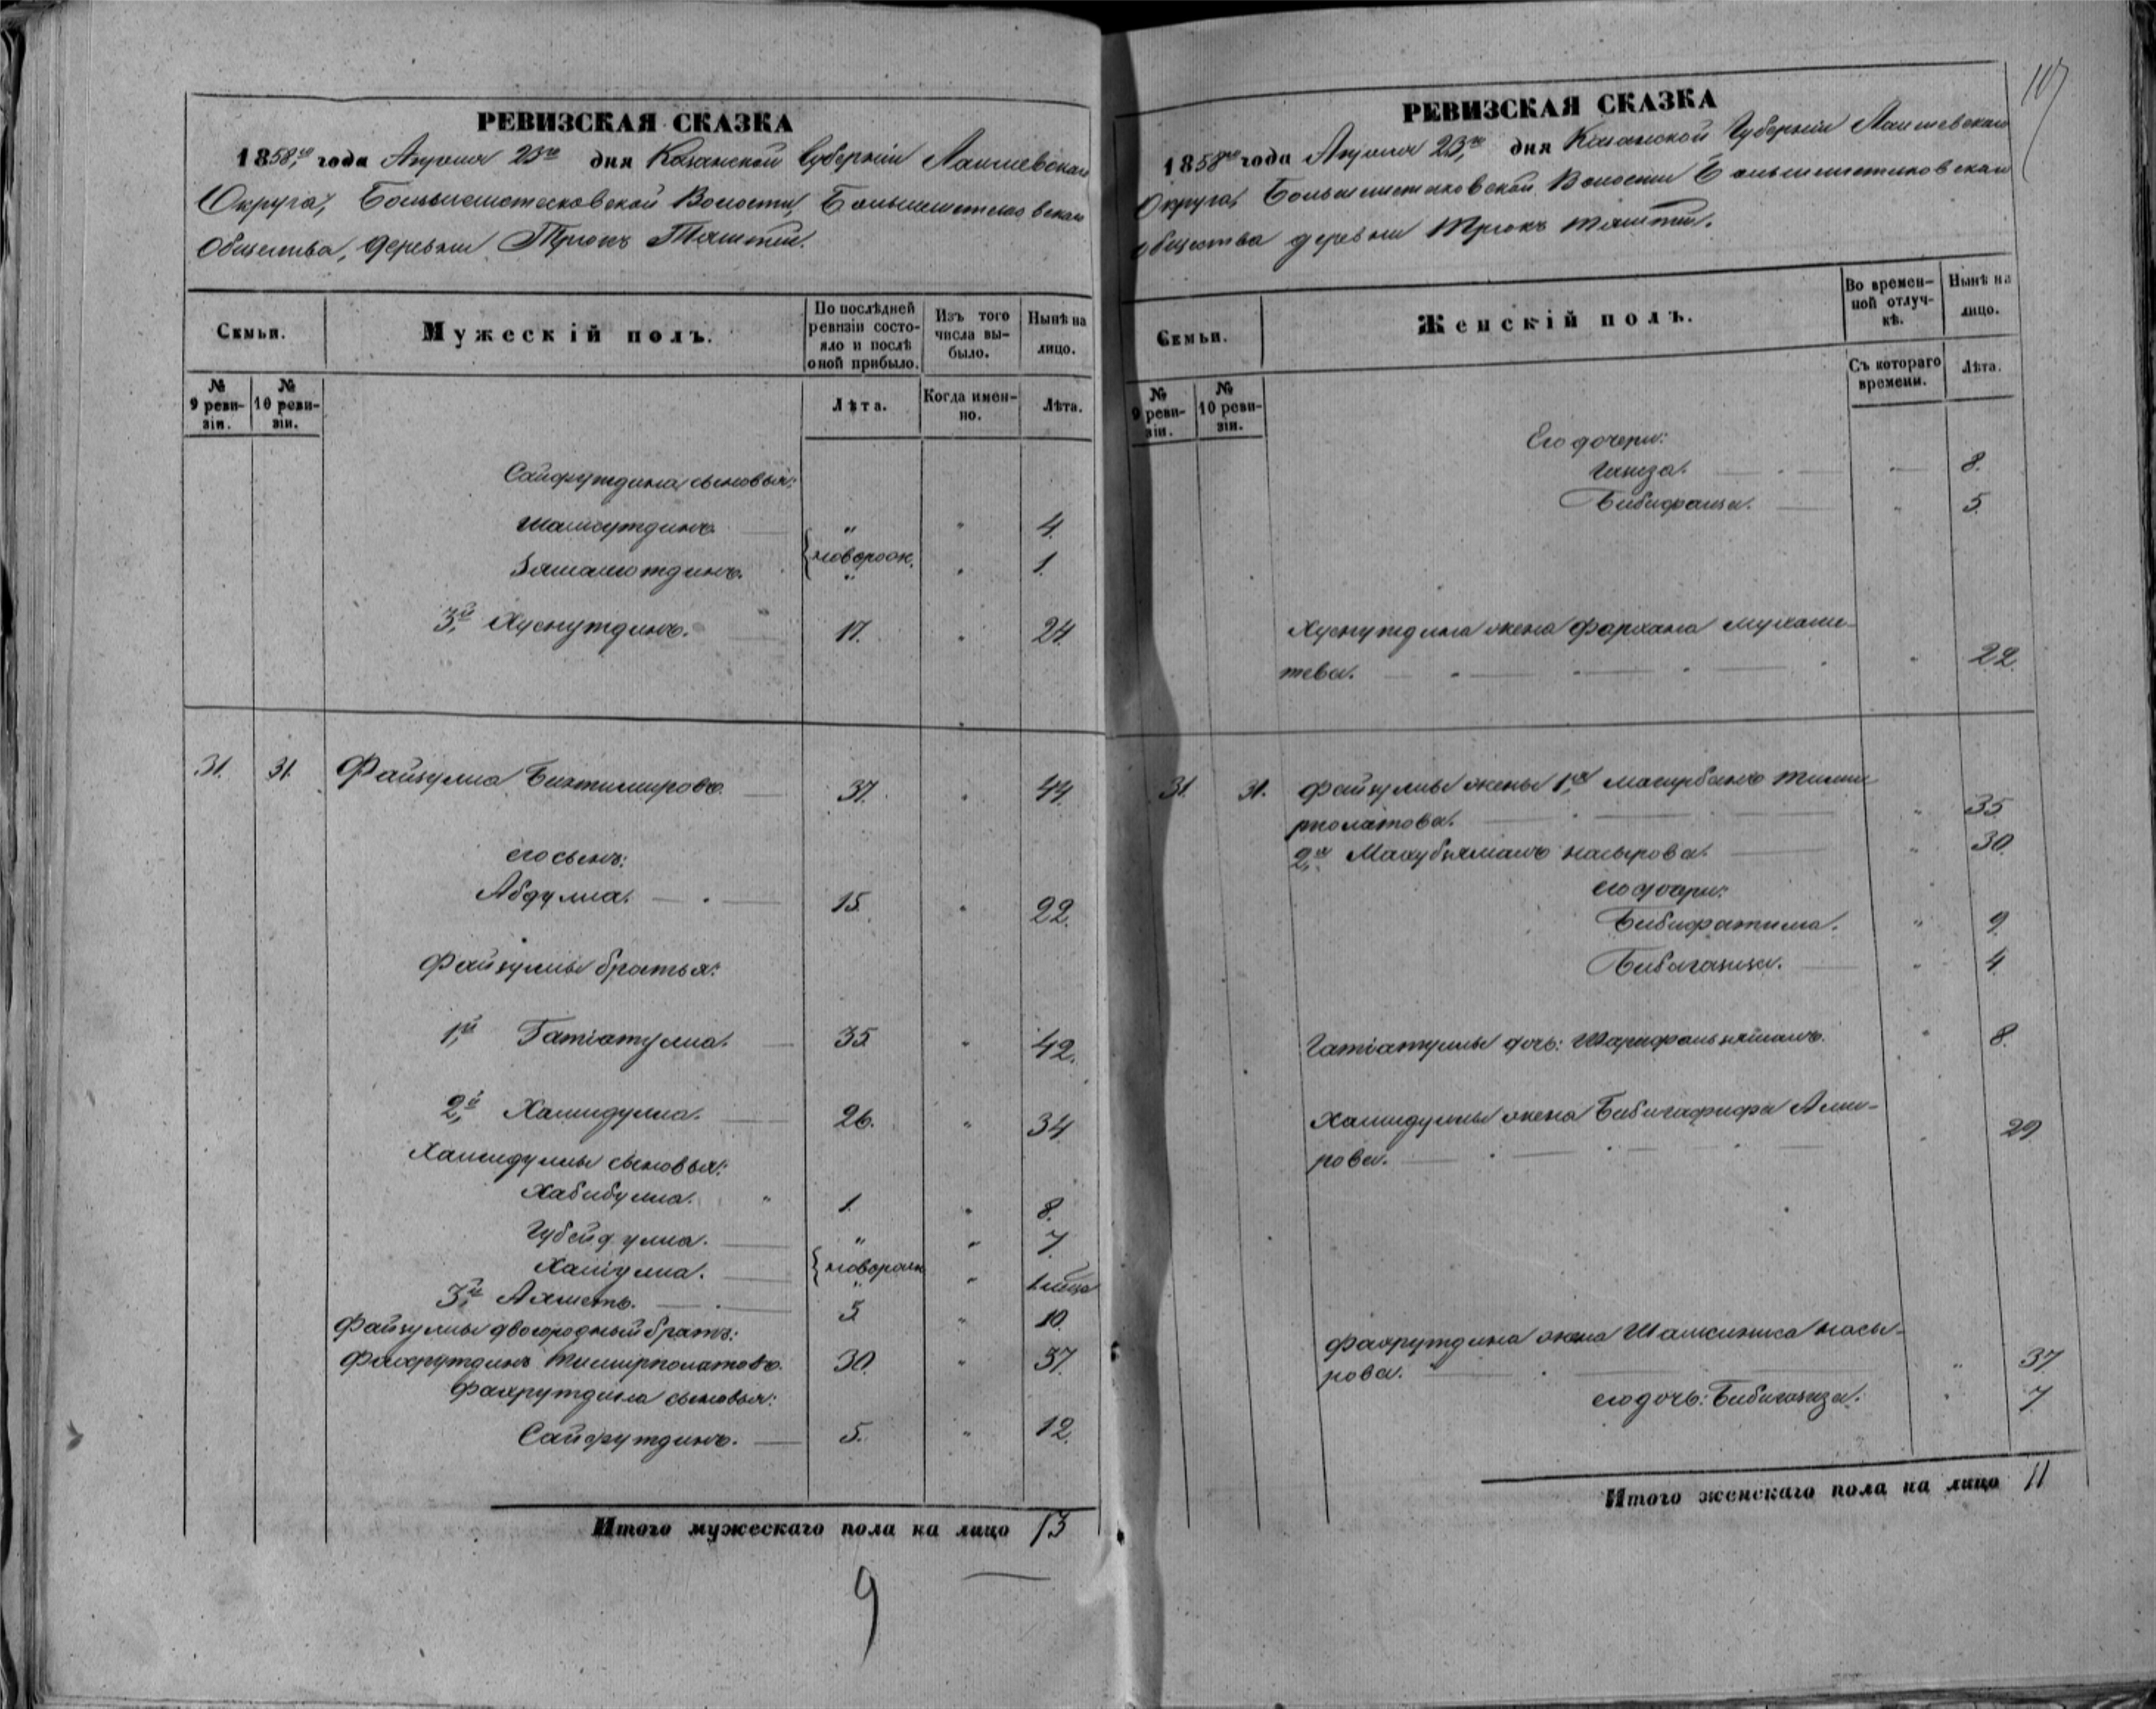 РЕВИЗСКАЯ СКАЗКА
1858,го года Апреля 23го дня Казанской Губернiи Лаишевскаго
Округа, Большеметесковской Волости, Большеметесковскаго
Общества, деревни Трюкъ Тямти.
Семьи.
Мужескій полъ.
По послѣдней ревизіи состояло и послѣ оной прибыло.
Изъ того числа выбыло.
Нынѣ на лицо.
№ 9 ревизіи.
№ 10 ревизіи.
Лѣта.
Когда именно.
Лѣта.
Сайфутдина сыновья:
Шамсутдинъ. " " 4.
новорож.
" " 1.
3й Хуснутдинъ. 17. " 24.
31. 31. Файзулла Бактимировъ. 37. " 44.
его сынъ:
Абдулла. 15. " 22.
Файзуллы братья:
1,й Гатіатулла. 35 " 42.
2,й Хамидулла. 26. " 34
Хамидуллы сыновья:
Хабибулла. " 1. " 8.
Губейдулла. " " 7
новорож " 
3,й Ахметъ. 3 " 10.
Файзуллы двоюродный братъ:
Фахрутдинъ Тимирполатовъ. 30. " 37.
Фахрутдина сыновья:
Сайфутдинъ. 5. " 12.
Итого мужескаго пола на лицо 13
9
107
РЕВИЗСКАЯ СКАЗКА
1858го года Апреля 23,го дня Казанской Губернiи Лаишевскаго
Округа, Большеметесковской Волости Большеметесковскаго
Общества деревни Трюкъ Тямти.
Семьи.
Женскій полъ.
Во временной отлучкѣ.
Нынѣ на лицо.
№ 9 ревизіи.
№ 10 ревизіи.
Съ котораго времени.
Лѣта.
Его дочери:
Газиза. " 8.
" 5.
Хуснутдина жена Фархана
" 22.
31. 31. Файзуллы жены 1,я Магирбану Тимир
полатова. " 35
2,я Насырова. " 30
его дочери:
Бибифатима. " 9
Бибигазиза. " 4
Гатіатуллы дочь: " 8.
Хамидуллы жена Бибигафифа Ами-
рова. " 29
Фахрутдина жена Насы-
рова. " 37
его дочь: Бибигазиза. " 7
Итого женскаго пола на лицо 11